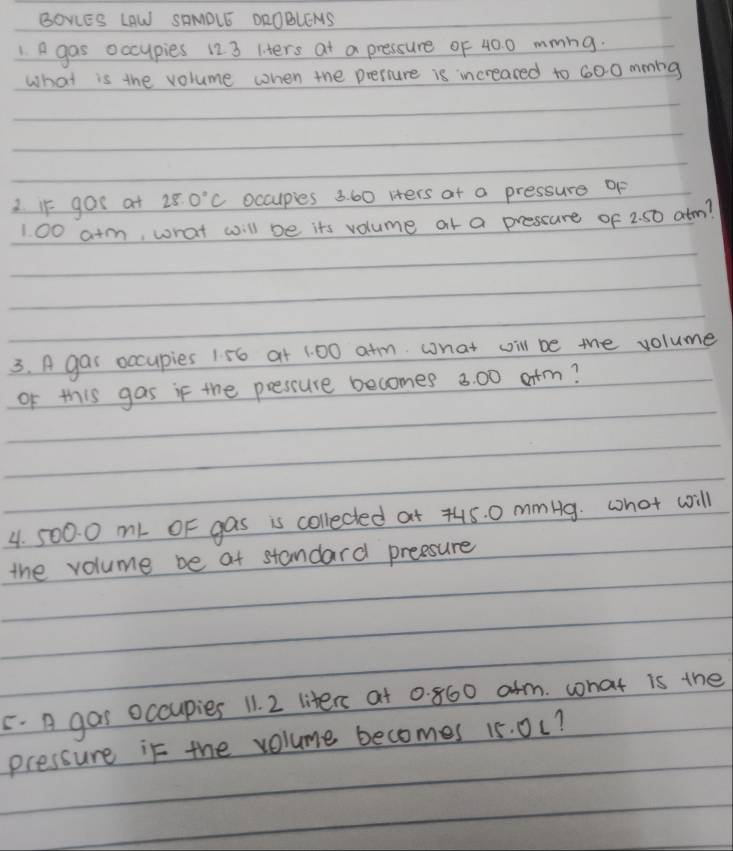 BOYLES LAW SAMPLE PROBLEMS
1. A gas occupies 12.3 liters at a pressure of 40.0 mmhg.
what is the volume when the pressure is increased to 60.0 mmhg
2. if gas at 28.0°C occupies 3.60 liters at a pressure of
1.00 atm, what will be its volume at a pressure of 2.50 atm?
3. A gas occupies 1.56 at 1.00 atm. what will be the volume
of this gas if the pressure becomes 3.00 atm?
4. 500.0 mL OF gas is collected at 745.0 mmHg. what will
the volume be at standard pressure
5. A gas occupies 11.2 liters at 0.860 atm. what is the
pressure if the volume becomes 15.0L?